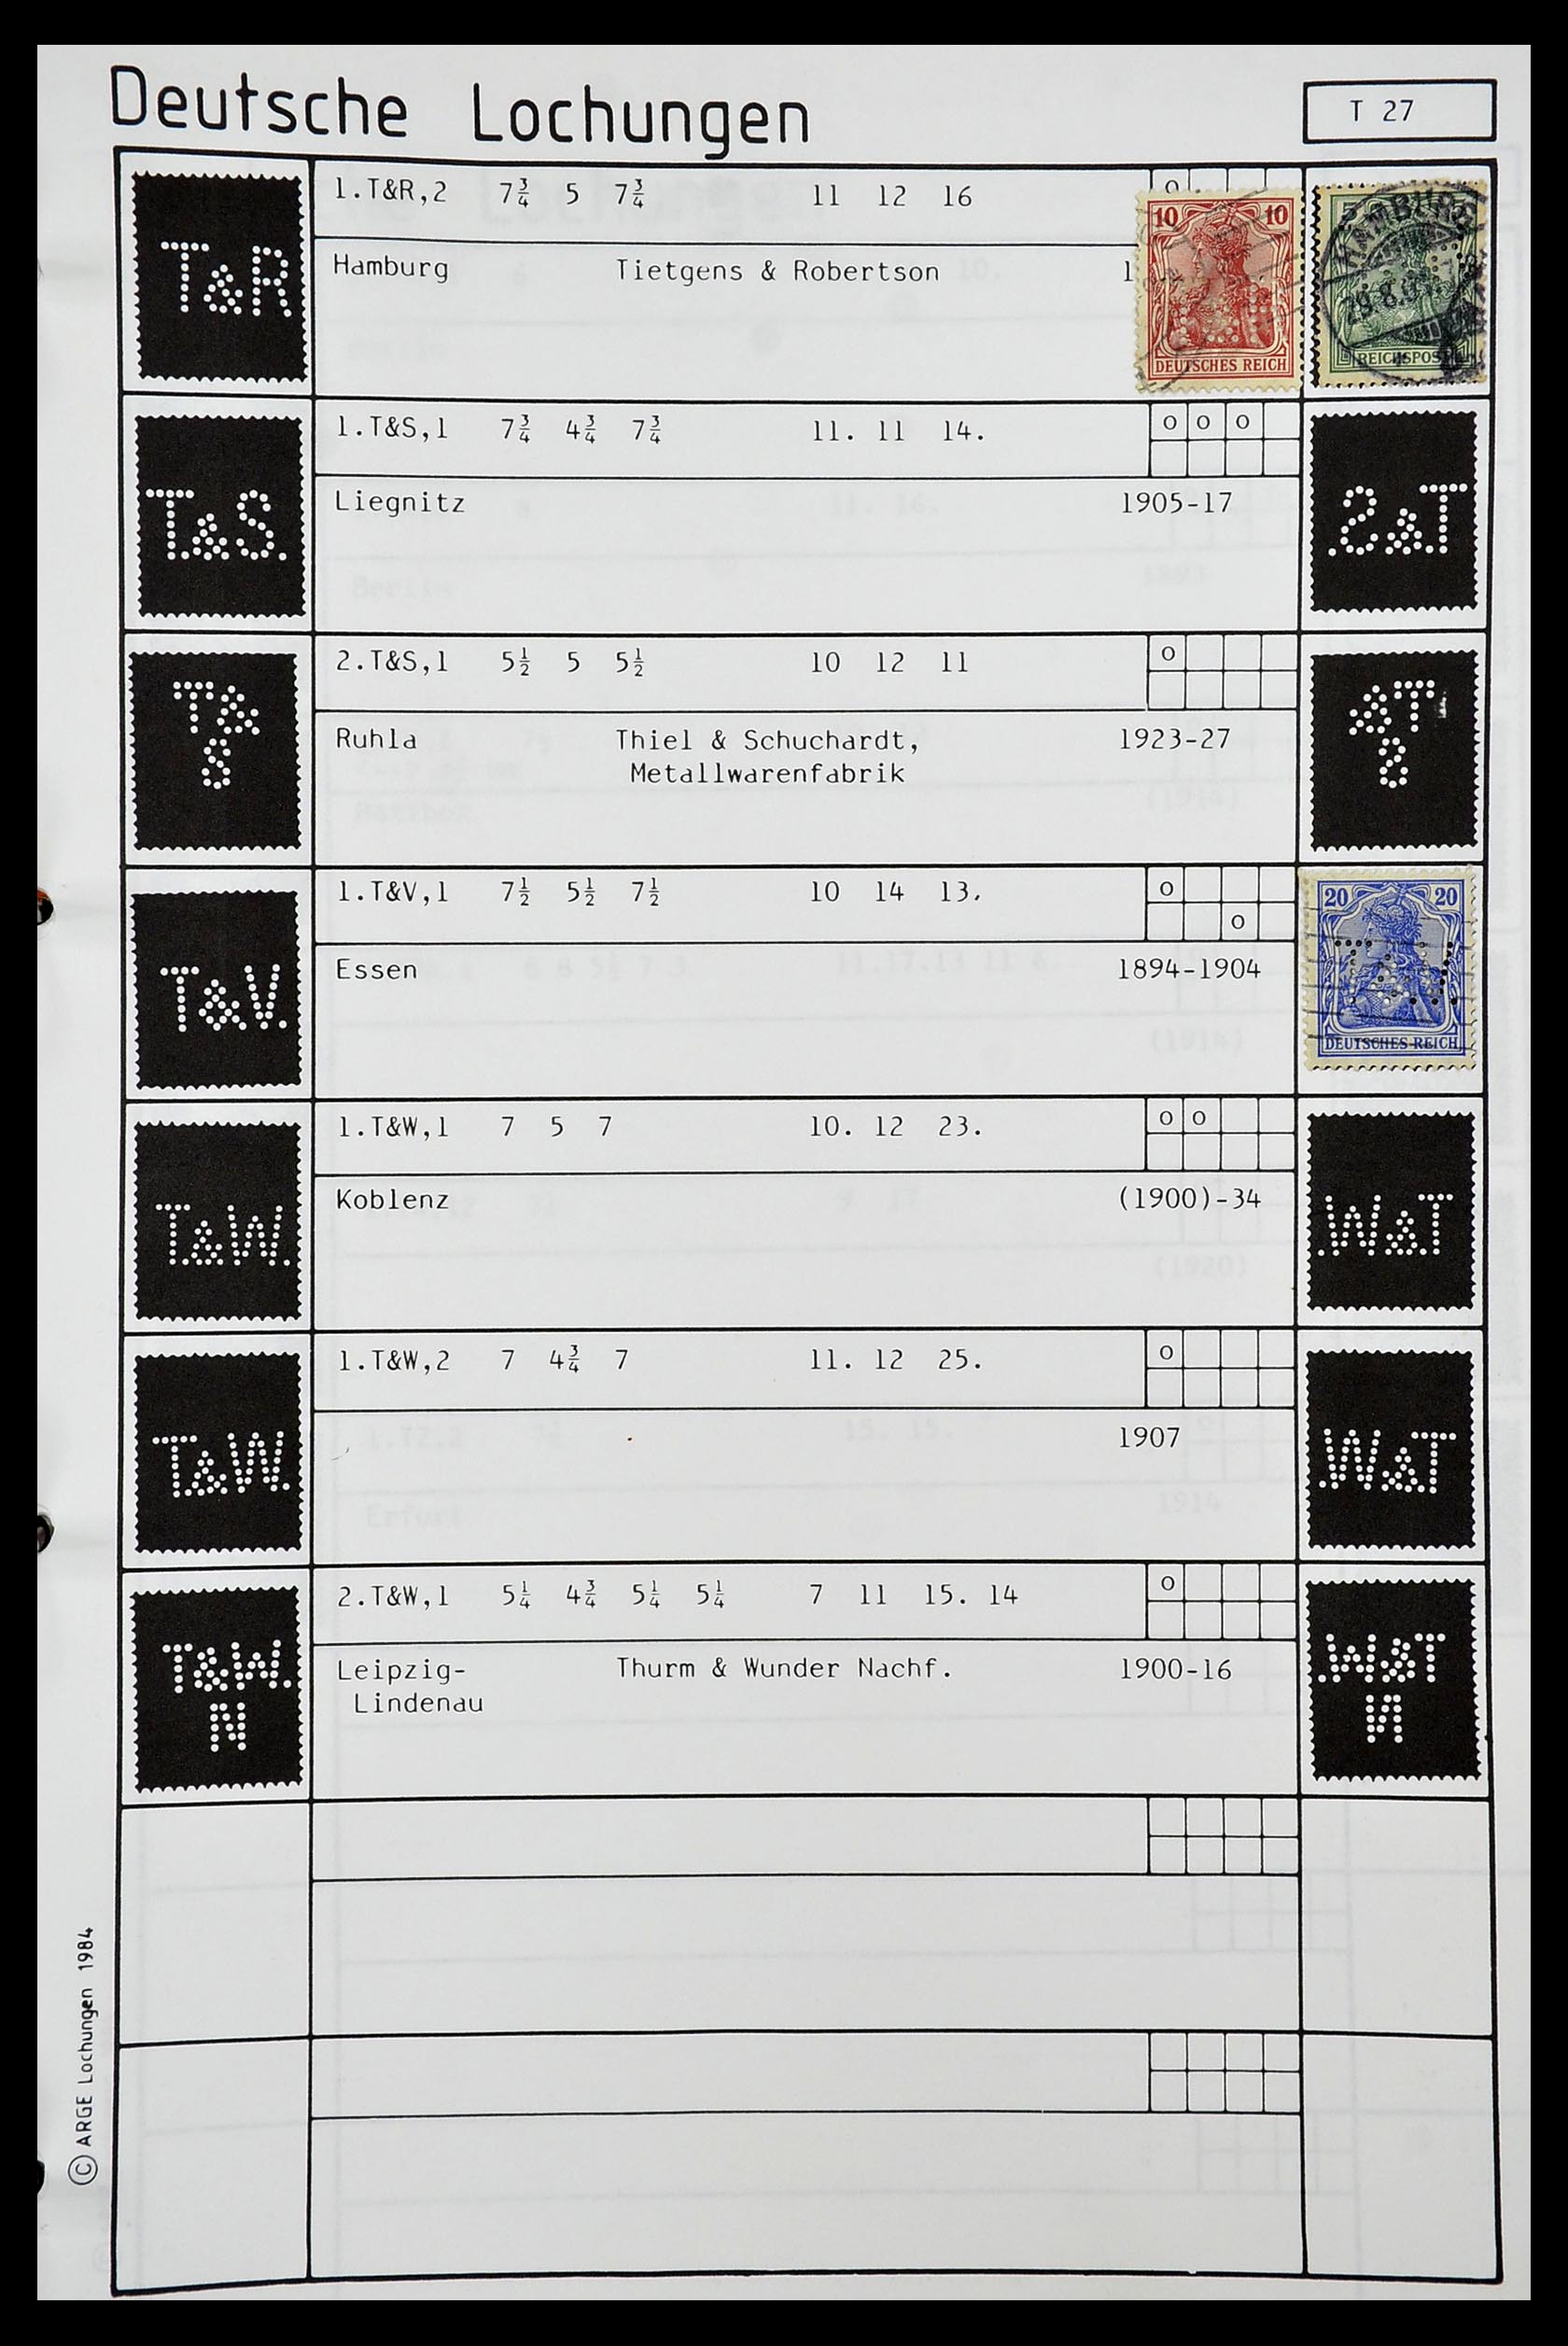 Deutsche Lochungen
T 27
T&R
1.T&R,2 7¾ 5 7¾ 11 12 16
Hamburg Tietgens & Robertson
10 10
DEUTSCHES REICH
HAMBURG
REICHSPOST
T.&S.
1.T&S,1 7¾ 4¾ 7¾ 11. 11 14. o o o
Liegnitz 1905-17
T&
S
2.T&S,1 5½ 5 5½ 10 12 11 o
Ruhla Thiel & Schuchardt, 1923-27
Metallwarenfabrik
T&V.
1.T&V,1 7½ 5½ 7½ 10 14 13. o
o
Essen 1894-1904
20 20
DEUTSCHES REICH
T.&W.
1.T&W,1 7 5 7 10. 12 23. o o
Koblenz (1900)-34
T.&W.
1.T&W,2 7 4¾ 7 11. 12 25. o
1907
T&W.
N
2.T&W,1 5¼ 4¾ 5¼ 5¼ 7 11 15. 14 o
Leipzig- Thurm & Wunder Nachf. 1900-16
Lindenau
© ARGE Lochungen 1984